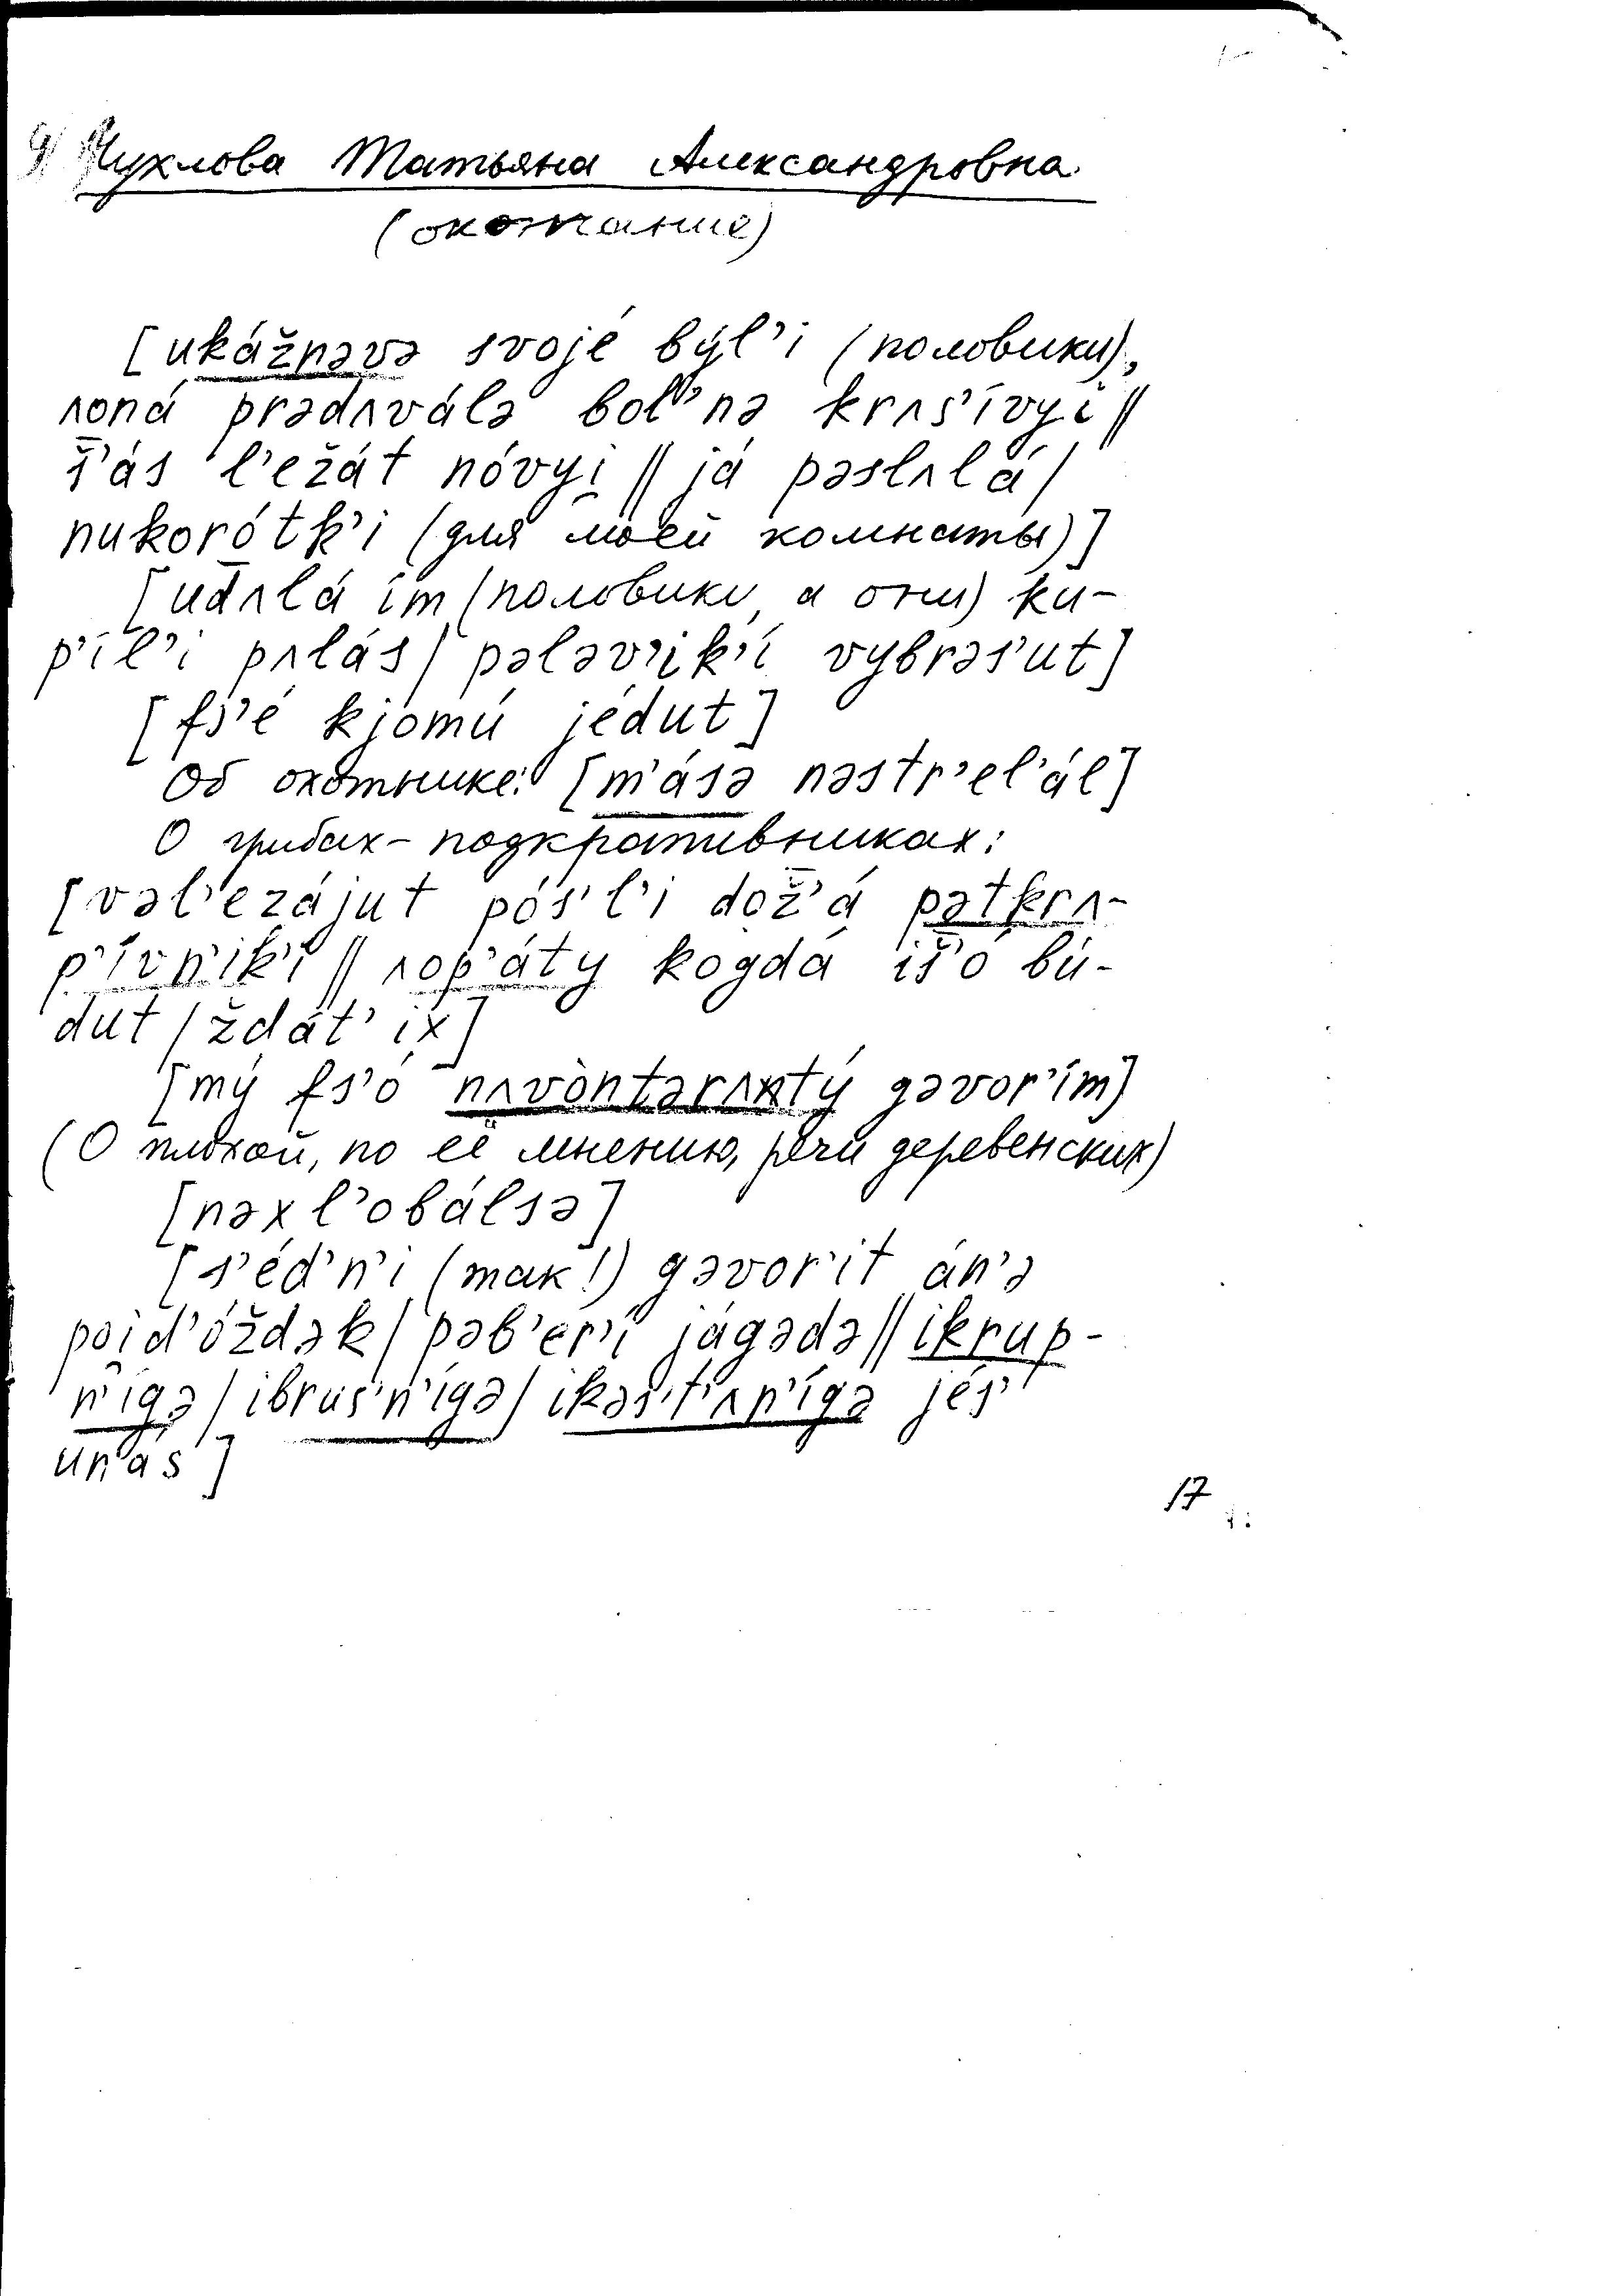 9) Чухлова Татьяна Александровна
(окончание)
[ukážnəvə svojé býl’i (половики),
ʌoná prədʌválə bol’nə krʌs’ívyi̯ //
š̄’ás l’ežát nóvyi̯ // já pəslʌlá /
nukorótk’i (для моей комнаты)]
[ud̄ʌlá ím (половики, а они) ku-
p’íl’i pʌlás / pələv’ik’í vybrəs’ut]
[fs’é kjomú jédut]
Об охотнике: [m’ásə nəstr’el’ál]
О грибах-подкрапивниках:
[vəl’ezájut pós’l’i dož̄’á pətkrʌ-
p’ívn’ik’i // ʌop’áty kogdá iš̄’ó bú-
dut / ždát’ ix]
[mý fs’ó nʌvòntərʌntý gəvor’ím]
(О плохой, по её мнению, речи деревенских)
[nəxl’obálsə]
[s’éd’n’i (так!) gəvor’it án’ə
poid’óždək / pəb’er’í jágədə // ikrup-
n’ígə / ibrus’n’ígə / ikəs’t’ʌn’ígə jés’
unás]
17